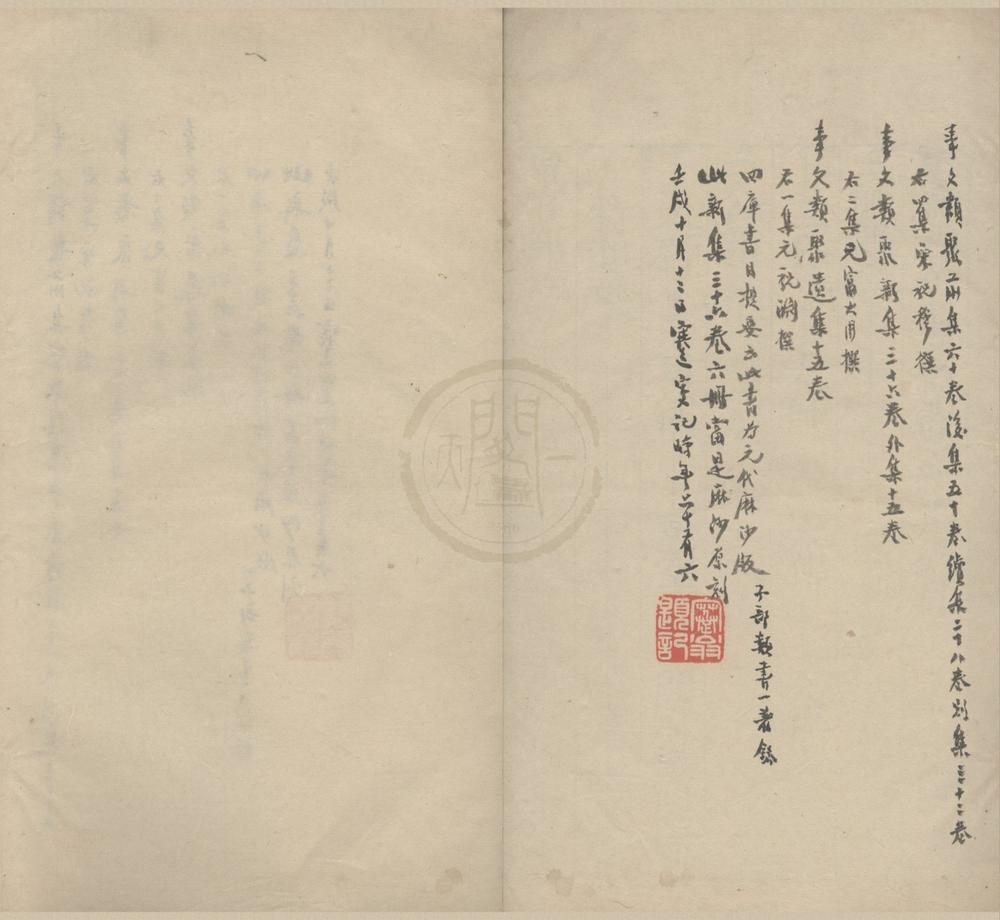 事文類聚前集六十卷後集五十卷續集二十八卷別集三十二卷
右四集宋祝穆撰
事文類聚新集三十六卷外集十五卷
右二集元富大用撰
事文類聚遺集十五卷
右一集元祝淵撰
四庫書目提要云此書爲元代麻沙版
子部類書一著錄
此新集三十六卷六冊當是麻沙原刻
壬戌十月十二日寒 記時年六十有六